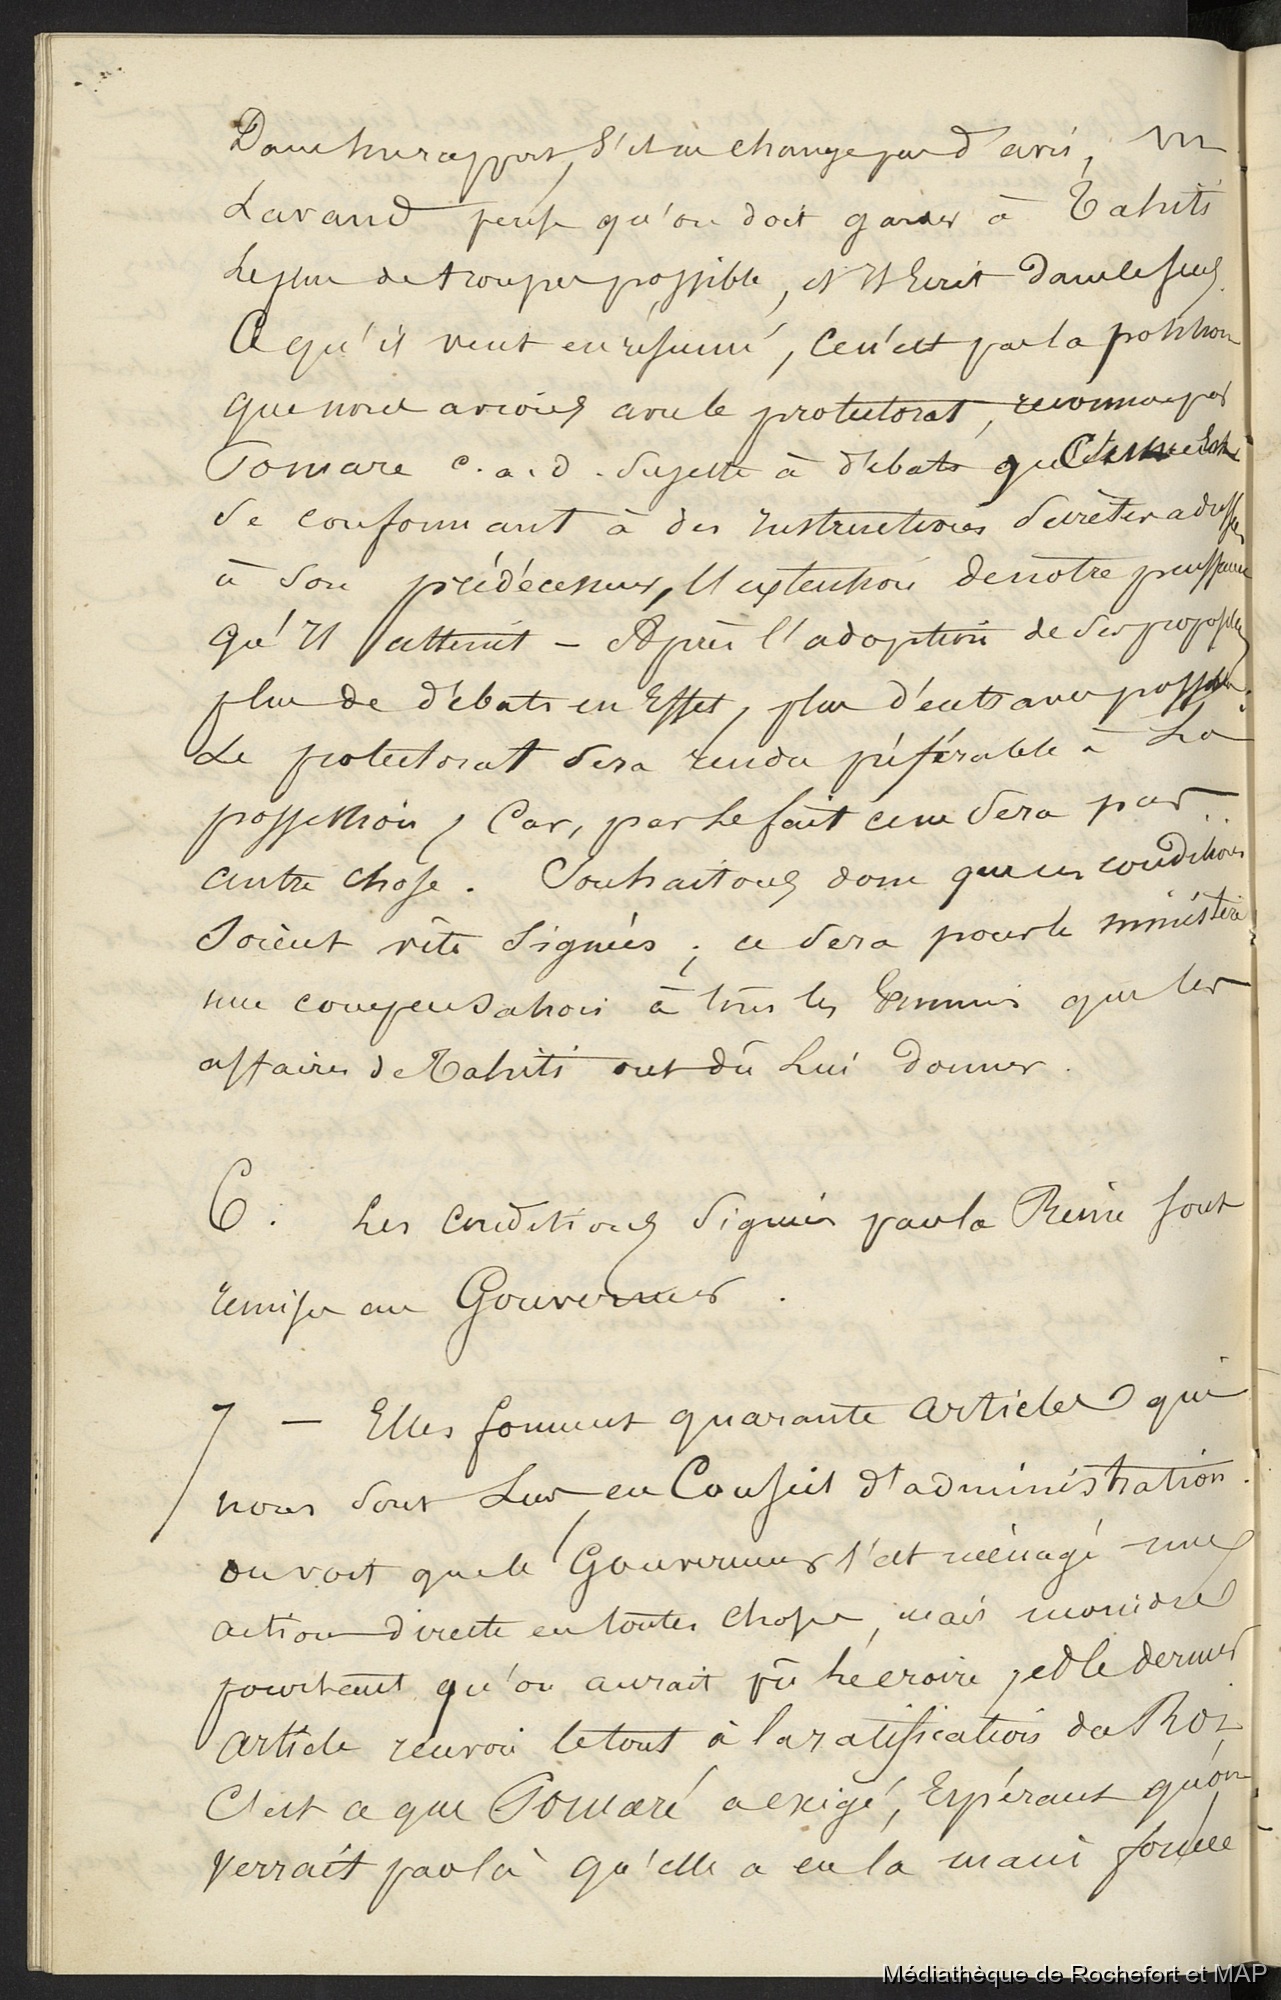 Dans leur rapport, s'il ne change pas d'avis, M
Lavaud pense qu'on doit garder à Tahiti
le plus de troupes possible, et Il Ecrit dans le sens.
Ce qu'il veut en résumé, ce n'est pas la position
que nous avions avec le protectorat, reconnu par
Pomare c. a. d. sujette à débats
se conformant à des Instructions secrètes adressées
à son prédécesseur, l'extention de notre puissance
qu'Il atteint - Après l'adoption de ses propos
plus de débats en Effet, plus d'entraves possibles.
Le protectorat sera rendu préférable à La
possession, Car, par Le fait ce ne sera pas
autre chose. Souhaitons donc que ces conditions
soient vîte signées ; ce sera pour le ministère
une compensation à tous les Ennuis que les
affaires de Tahiti ont dû Lui donner.
6. Les conditions signées par la Reine sont
remises au Gouverneur.
7 - Elles forment quarante articles qui
nous sont Lus en Conseil d'administration.
on voit que le Gouverneur s'est ménagé une
action directe en toutes choses, mais moindre
pourtant qu'on aurait pû Le croire, et le dernier
article renvoie le tout à la ratification du Roi,
C'est ce que Pomaré a exigé, Espérant qu'on
verrait par là qu'elle a eu la main forcée
Médiathèque de Rochefort et MAP